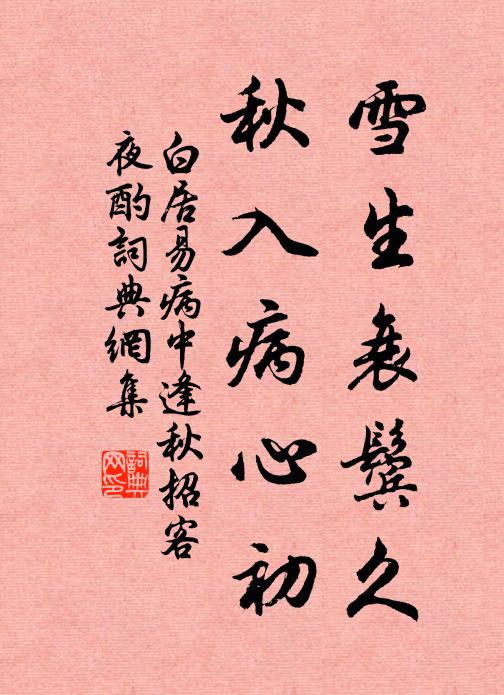 雪生衰鬢久
秋入病心初
白居易病中逢秋招客
夜酌詞典網集
詞典
网印